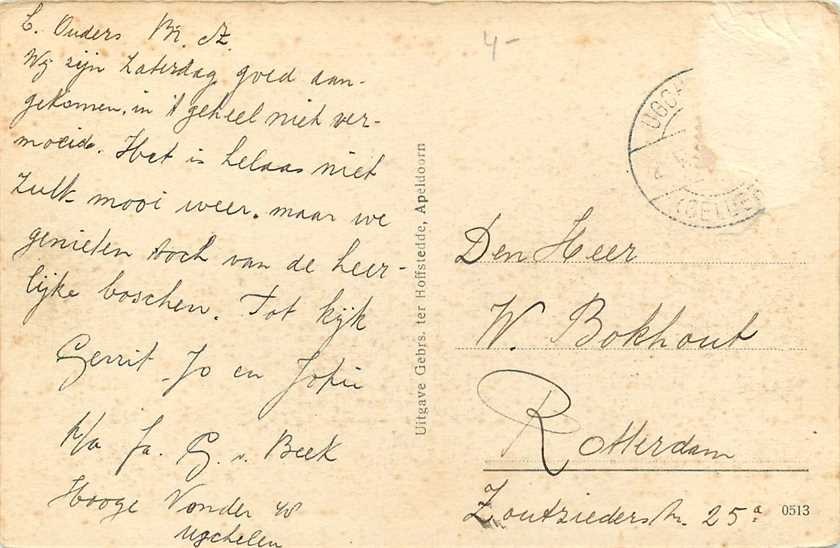 L. Ouders Br. Z.
Wij zijn Zaterdag goed aan-
gekomen, in 't geheel niet ver-
moeid. Het is helaas niet
zulk mooi weer, maar we
genieten toch van de heer-
lijke bosschen. Tot kijk
Gerrit Jo en Jopie
p/a fa. G. v. Beek
Hooge Vonder 48
Ugchelen
Uitgave Gebrs. ter Hoffstedde, Apeldoorn
4-
Den Heer
W. Bokhout
Rotterdam
Zoutziederstr. 25a
0513